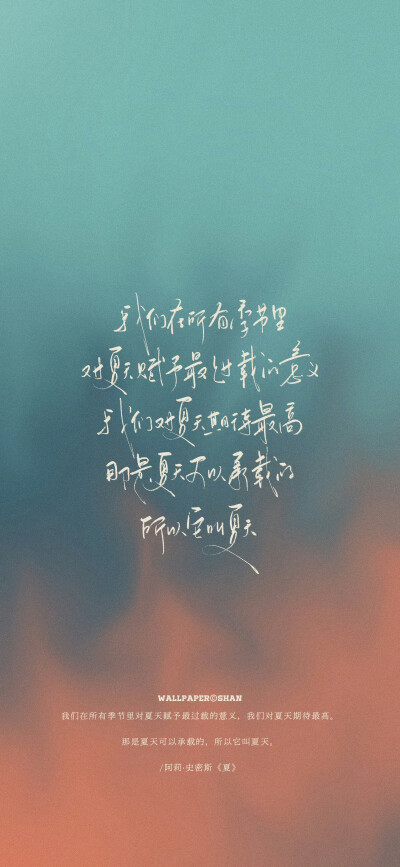 我们在所有季节里
对夏天赋予最过载的意义
我们对夏天期待最高
那是夏天可以承载的
所以它叫夏天
WALLPAPER©SHAN
我们在所有季节里对夏天赋予最过载的意义，我们对夏天期待最高。
那是夏天可以承载的，所以它叫夏天。
/阿莉·史密斯《夏》